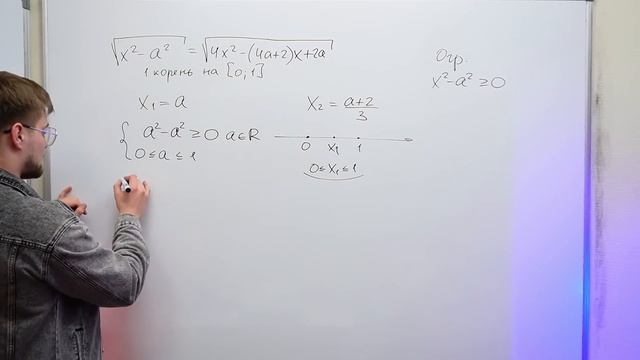 √(x² - a²) = √(4x² - (4a+2)x + 2a)
1 корень на [0;1]
Огр.
x² - a² ≥ 0
x₁ = a
x₂ = (a+2)/3
{ a² - a² ≥ 0 a ∈ R
0 ≤ a ≤ 1
0 x₁ 1
0 ≤ x₁ ≤ 1